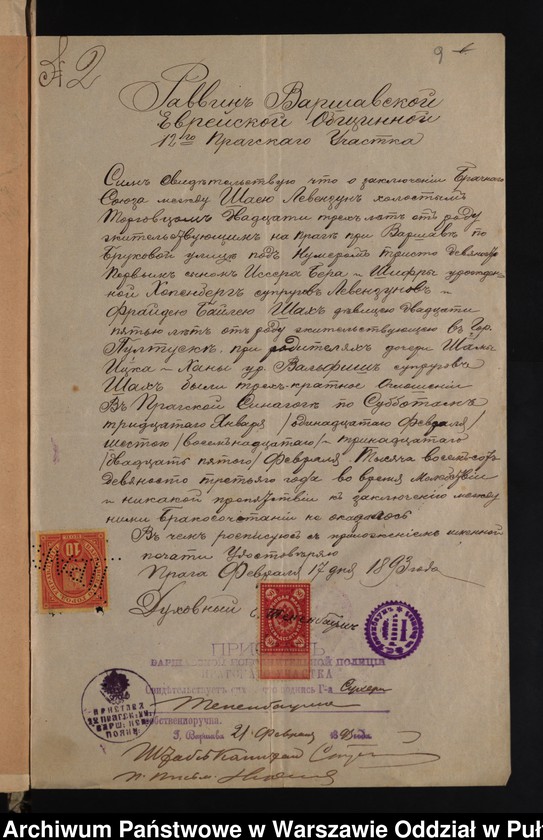 № 2
9
Раввинъ Варшавской
Еврейской Общинной
12го Прагскаго Участка
Симъ Свидѣтельствую что о заключеніи Брачнаго
Союза между Шаею Левензунъ холостымъ
Торговцомъ Двадцати трехъ лѣтъ отъ роду
жительствующимъ на Прагѣ при Варшавѣ по
Бруковой улицѣ подъ Нумеромъ триста девяносто
Первымъ сыномъ Иссера Бера и Шифры урожден-
ной Копенбергъ супруговъ Левензуновъ и
Фрайдею Байлею Шахъ дѣвицею двадцати
пятью лѣтъ отъ роду жительствующею въ Гор.
Пултускѣ при родителяхъ дочери Шама
Ицка и Ханы ур. Вальфишъ супруговъ
Шахъ были трехъ-кратное оглошеніи
Въ Прагской Синагогѣ по Субботамъ
тридцатаго Января /одинадцатаго Февраля/
шестого /восемьнадцатаго/ и тринадцатаго
/двадцать пятого/ Февраля Тысяча восемьсотъ
девяносто третьяго года во время молитвы
и никакой препятствіи къ заключенію между
ними бракосочетаніи не оказалось
Въ чемъ росписуюсь съ приложеніемъ именной
печати удостовѣряю
Прага Февраля 17 дня 1893 года
Духовный С. Тененбаумъ
10
ПРИСТАВЪ
ВАРШАВСКОЙ ПОЛИЦІИ
УЧАСТКА
Свидѣтельствуетъ что подпись Г-а Сухера
Тененбаума
собственноручна.
Г. Варшава 21 Февраля 1893 года
Штабсъ Капитанъ
П. Письм.
ПРИСТАВЪ
12 ПРАГСКАГО
ВАРШ.
ПОЛИЦ.
Archiwum Państwowe w Warszawie Oddział w Puł